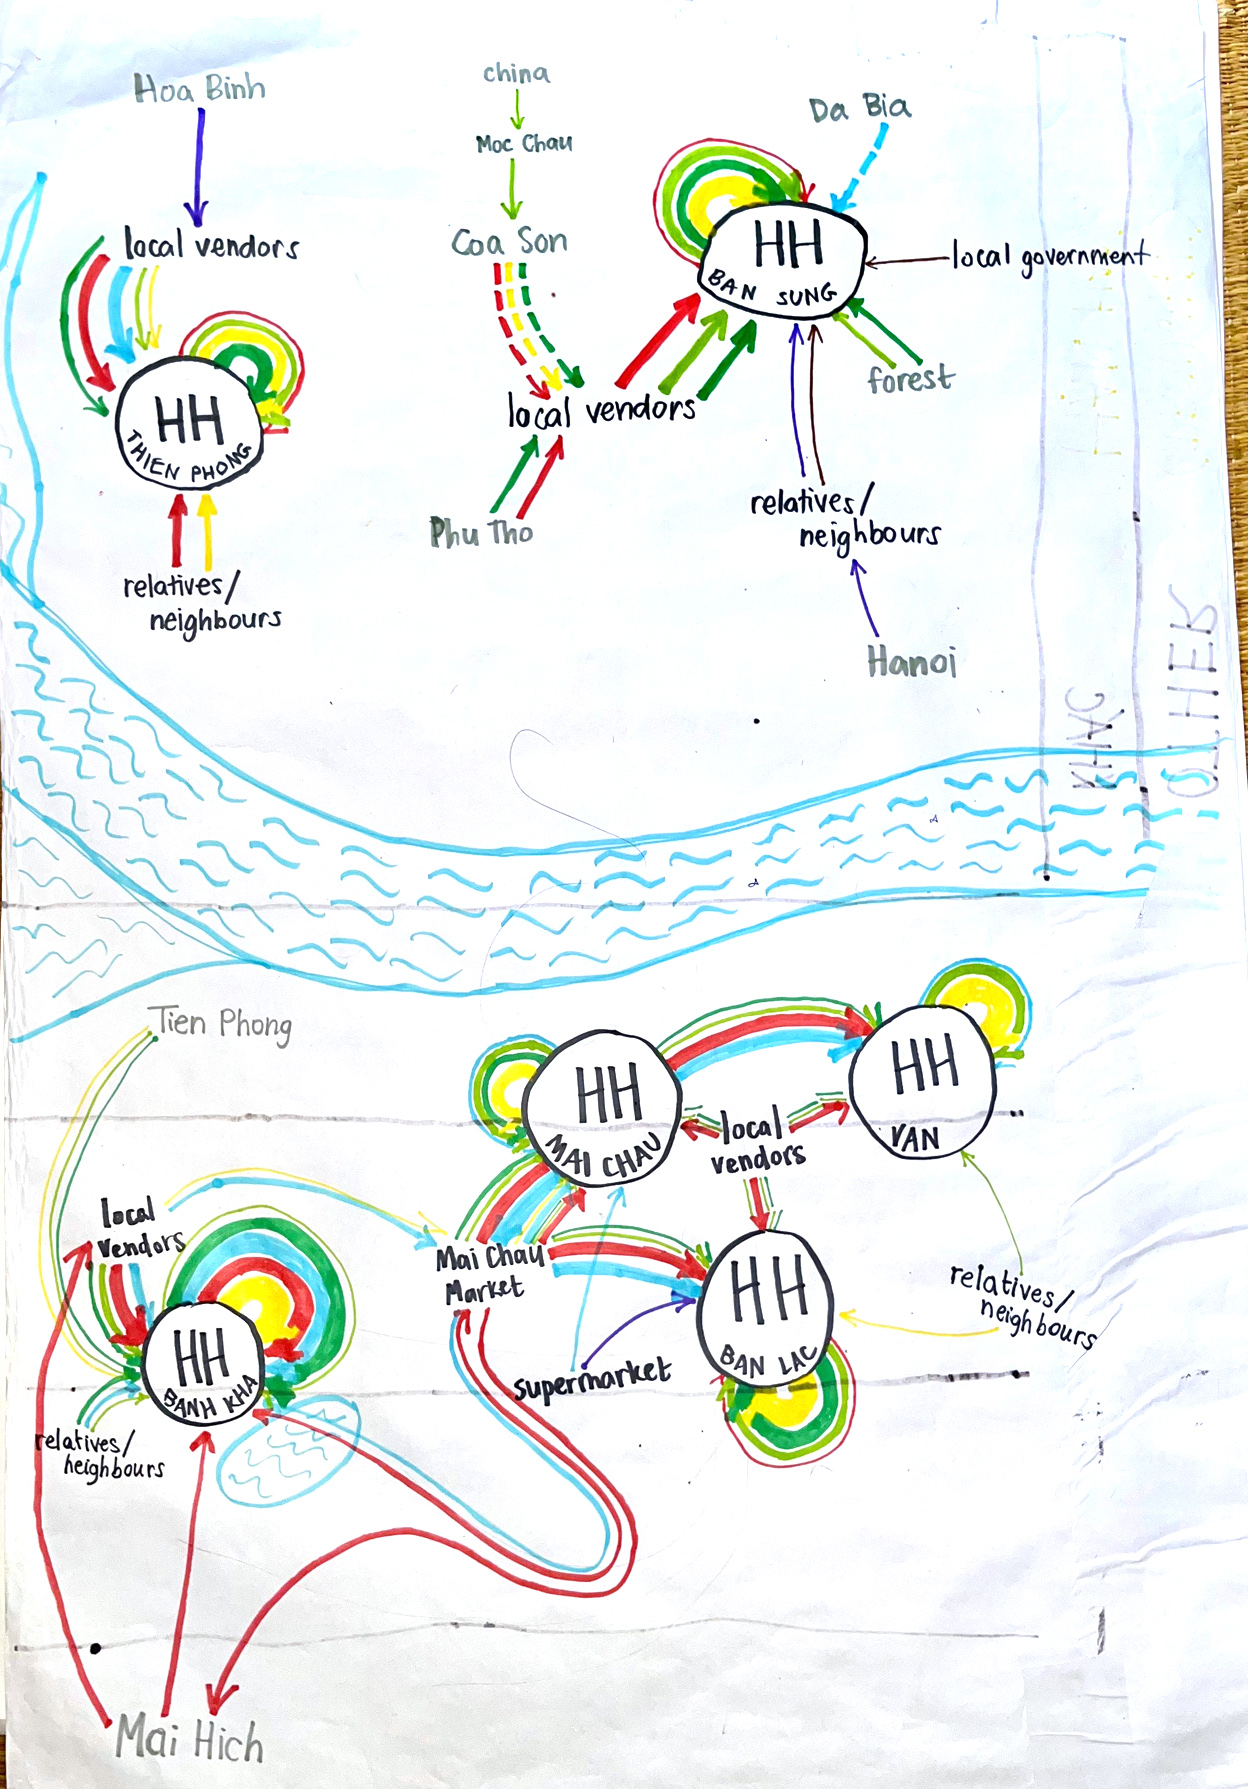 Hoa Binh
local vendors
HH
THIEN PHONG
relatives/
neighbours
china
Moc Chau
Coa Son
local vendors
Phu Tho
Da Bia
HH
BAN SUNG
local government
forest
relatives/
neighbours
Hanoi
KHAC
OTHER
Tien Phong
HH
MAI CHAU
HH
VAN
local
vendors
local
vendors
Mai Chau
Market
HH
BAN LAC
relatives/
neighbours
supermarket
HH
BANH KHA
relatives/
neighbours
Mai Hich